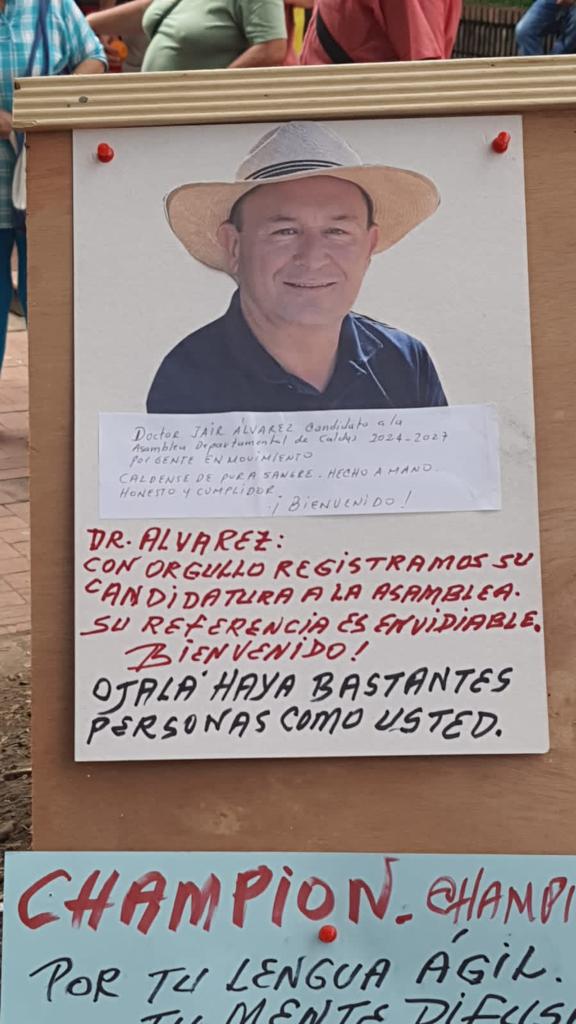 Doctor JAIR ÁLVAREZ Candidato a la
Asamblea Departamental de Caldas 2024-2027
POR GENTE EN MOVIMIENTO
CALDENSE DE PURA SANGRE. HECHO A MANO.
HONESTO Y CUMPLIDOR.
¡BIENVENIDO!
DR. ALVAREZ:
CON ORGULLO REGISTRAMOS SU
CANDIDATURA A LA ASAMBLEA.
SU REFERENCIA ES ENVIDIABLE.
BIENVENIDO!
OJALÁ HAYA BASTANTES
PERSONAS COMO USTED.
CHAMPION. CHAMPI
POR TU LENGUA ÁGIL.
TU MENTE DIFUS